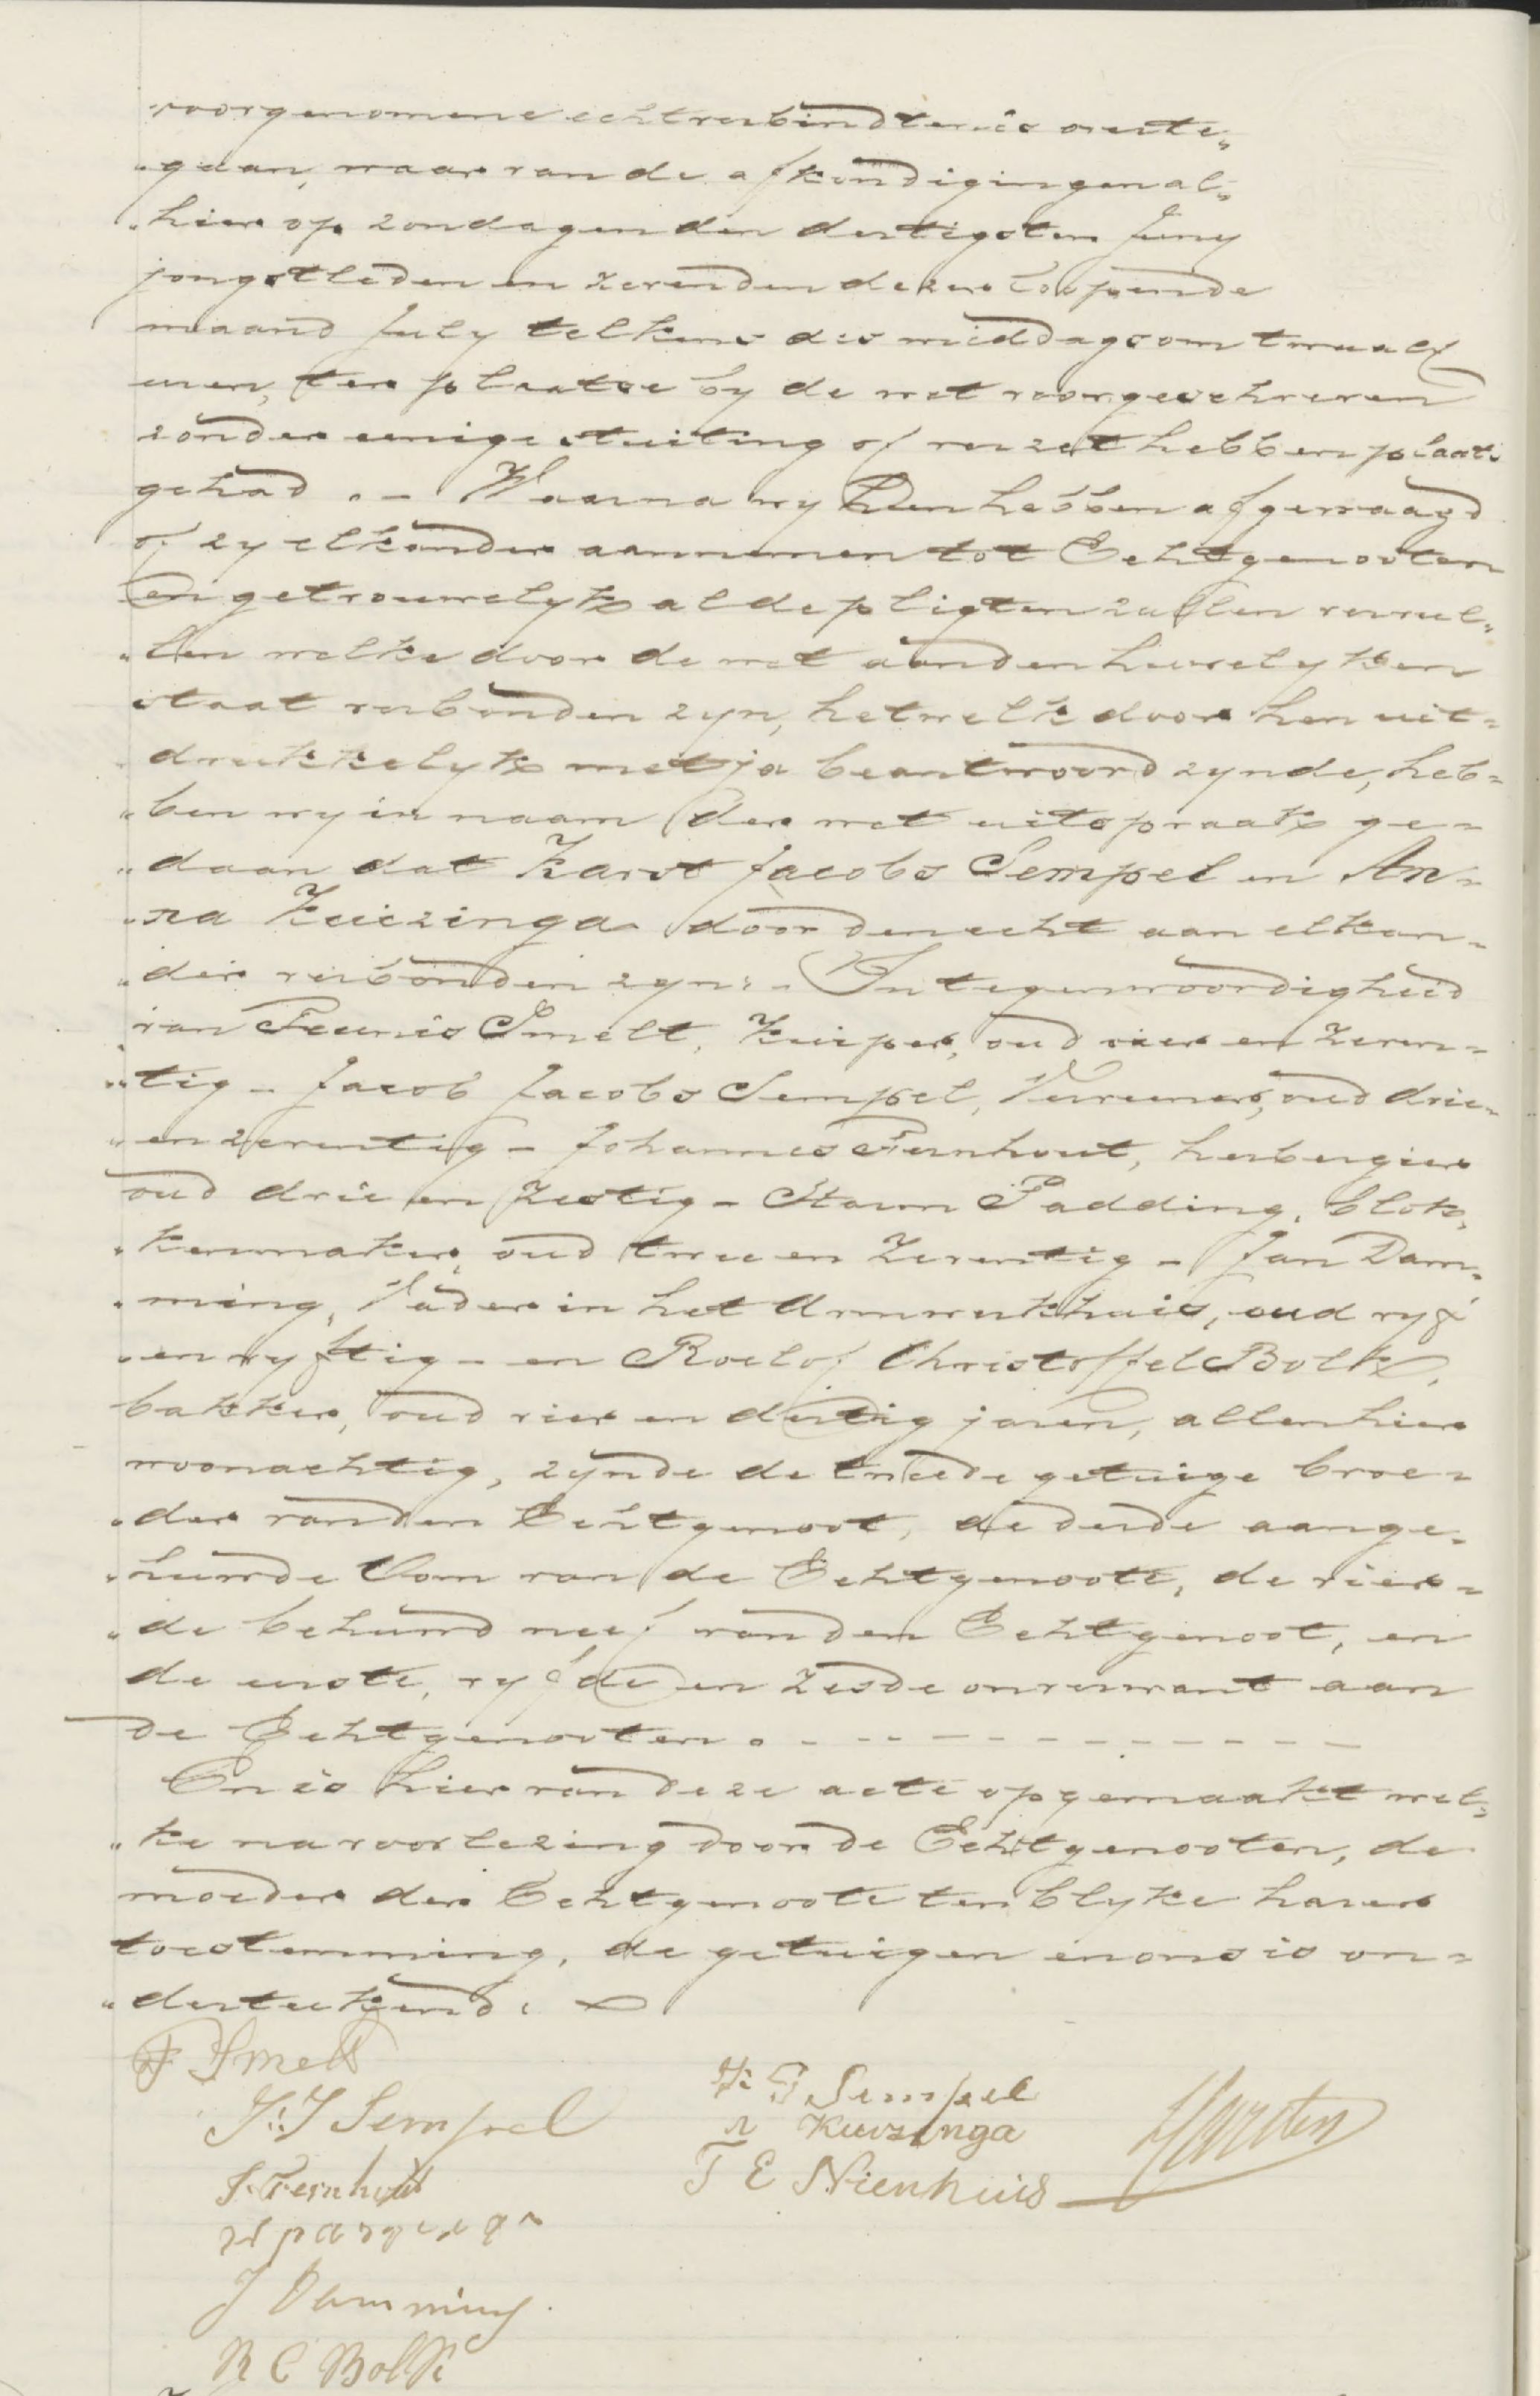 voorgenomene echtverbindtenis overte„
„gaan, waar van de afkondigingen al„
„hier op zondagen den dertigsten Juny
jongstleden en zevenden dezer loopende
maand July telkens des middags om twaalf
uren, ter plaatse by de wet voorgeschreven
zonder eenige stuiting of verzet hebben plaats
gehad. – Waarna wy Hen hebben afgevraagd
of zy elkander aannemen tot Echtgenooten
en getrouwelyk al de pligten zullen vervul„
„len welke door de wet aan den huwelyken
staat verbonden zyn, hetwelk door hen uit=
drukkelyk met ja beantwoord zynde, heb=
„ben wy in naam der wet uitspraak ge=
„daan dat Karst Jacobs Sempel en An=
„na Kuizinga door den echt aan elkan=
„der verbonden zyn. – In tegenwoordigheid
van Teunis Smelt, Kuiper, oud vier en zeven=
„tig – Jacob Jacobs Sempel, Verwer, oud drie=
„en zeventig – Johannes Fernhout, herbergier
oud drie en zestig – Harm Padding, blok„
„kenmaker, oud twee en zeventig – Jan Dam„
„ming, Vader in het Armwerkhuis, oud vyf
„en vyftig – en Roelof Christoffel Bolk,
bakker, oud vier en dertig jaren, allen hier
woonachtig, zynde de tweede getuige broe=
„der van den Echtgenoot, de derde aange=
„huwde Oom van de Echtgenoote, de vier=
„de behuwd neef van den Echtgenoot, en
de eerste, vyfde en zesde onverwant aan
de Echtgenooten. – – – – – – – – – – – –
En is hier van deze acte opgemaakt wel„
„ke na voorlezing door de Echtgenooten, de
moeder der Echtgenoote ten blyke harer
toestemming, de getuigen en ons is on=
„derteekend.
T Smelt
J. J Sempel
J. Fernhout
J Damming
R C Bolk
K: J Sempel
A Kuizinga
T E Nienhuis